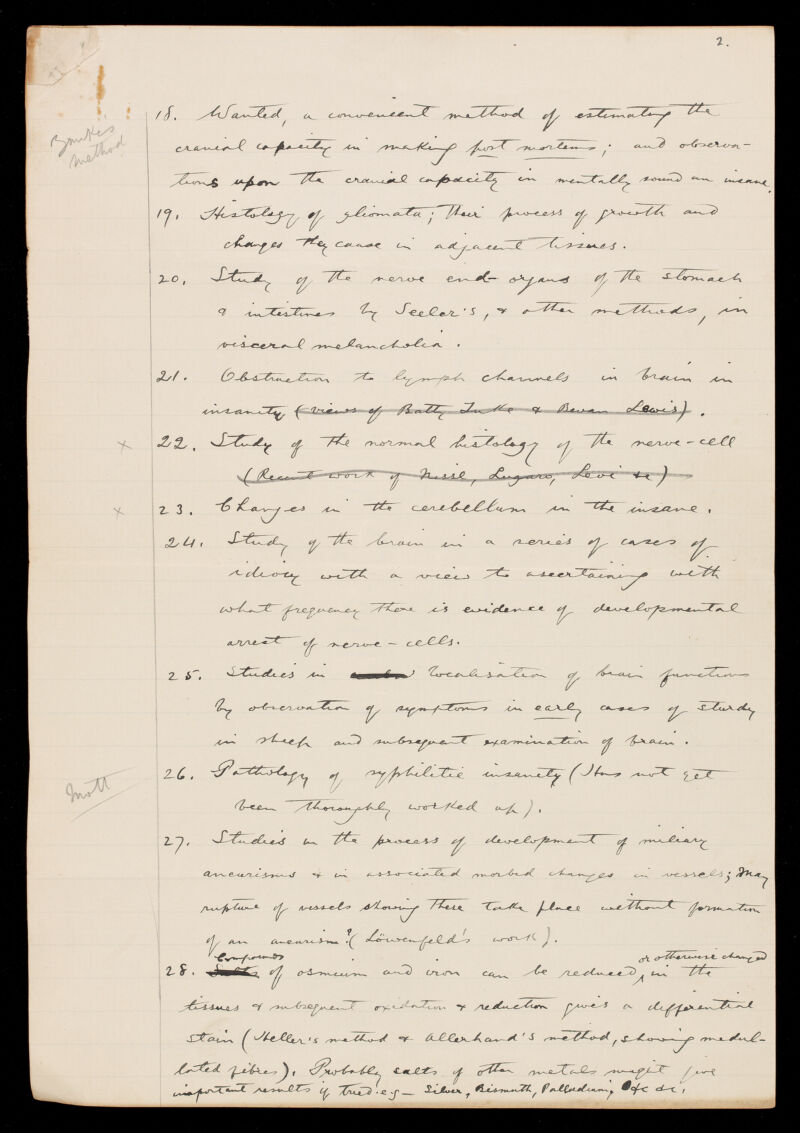 2.
18. Wanted, a convenient method of estimating the
method
cranial capacity in making post mortems; and observa-
tions upon the cranial capacity in mentally sound an insane.
19. Histology of gliomata; their process of growth and
changes they cause in adjacent tissues.
20. Study of the nerve end-organs of the stomach
& intestines by Seeler's, & other methods, in
visceral melancholia.
21. Obstruction to lymph channels in brain in
insanity (views of Batty Tuke & Bevan Lewis).
x 22. Study of the normal histology of the nerve-cell
(Recent work of Nissl, Lugaro, Levi &c)
x 23. Changes in the cerebellum in the insane.
24. Study of the brain in a series of cases of
idiocy with a view to ascertaining with
what frequency there is evidence of developmental
arrest of nerve-cells.
25. Studies in localisation of brain functions
by observation of symptoms in early cases of sturdy
in sheep and subsequent examination of brain.
Mott
26. Pathology of syphilitic insanity (Has not yet
been thoroughly worked up).
27. Studies in the process of development of miliary
aneurisms & in associated morbid changes in vessels; may
rupture of vessels showing these take place without formation
of an aneurism? (Löwenfeld's work).
Compounds or otherwise changed
28. Salts of osmium and iron can be reduced, in the
tissues & subsequent oxidation & reduction gives a differential
stain (Heller's method & Allerhand's method, showing medul-
lated fibres). Probably salts of other metals might give
important results if tried e.g — Silver, Bismuth, Palladium, &c &c.